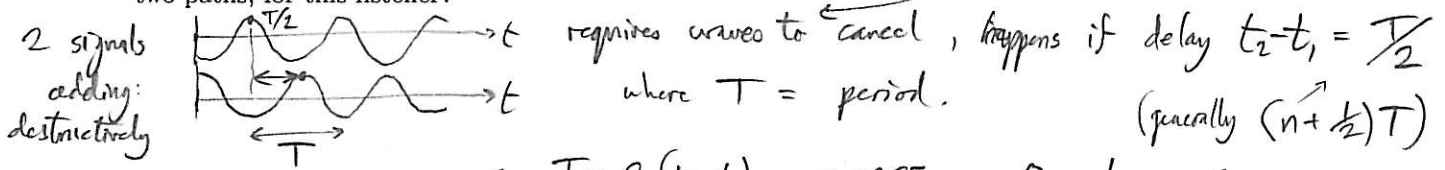 two paths, for this listener.
2 signals
adding:
destructively
T/2
t
t
T
requires waves to cancel, happens if delay t₂-t₁ = T/2
where T = period.
(generally (n+½)T)